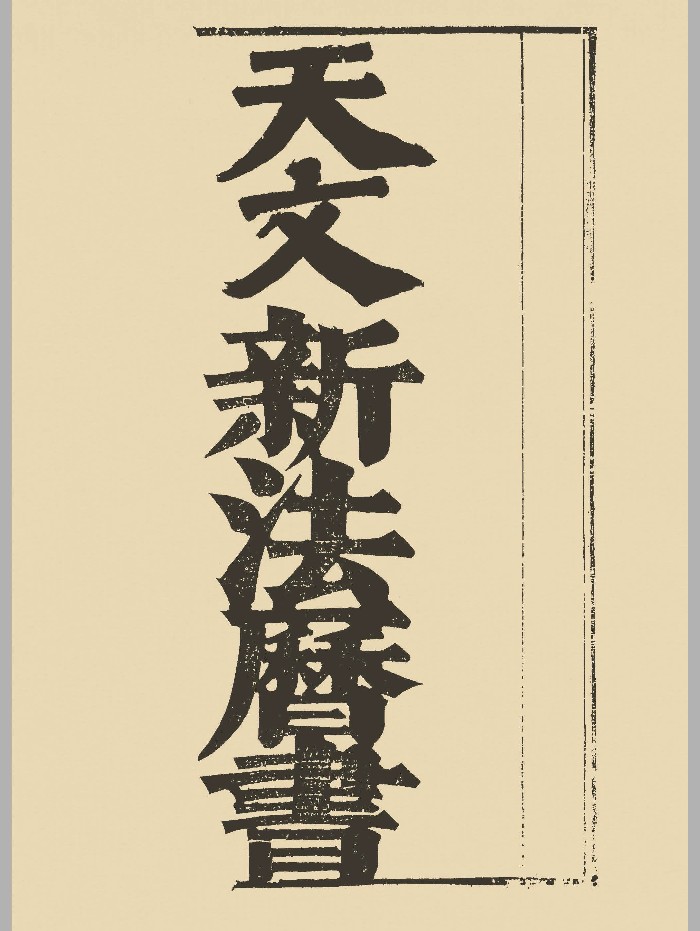 天文新法曆書